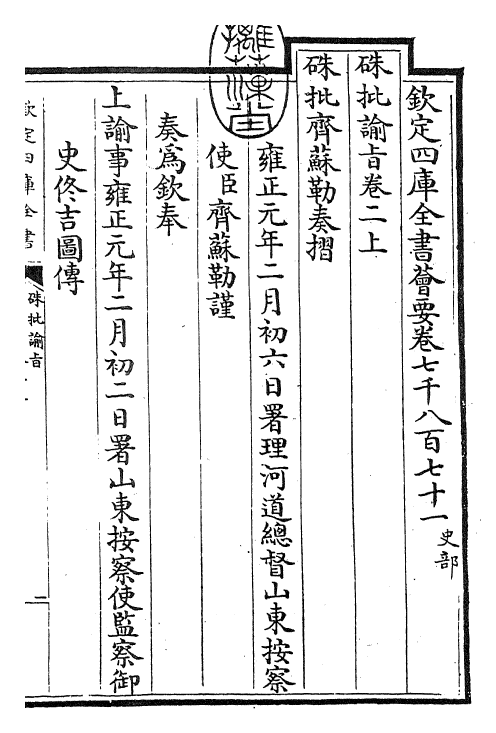 欽定四庫全書薈要卷七千八百七十一 史部
硃批諭旨卷二上
硃批齊蘇勒奏摺
雍正元年二月初六日署理河道總督山東按察
使臣齊蘇勒謹
奏為欽奉
上諭事雍正元年二月初二日署山東按察使監察御
史佟吉圖傳
欽定四庫全書
硃批諭旨